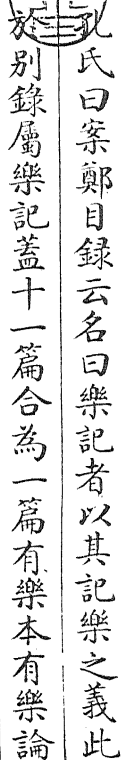 孔氏曰案鄭目録云名曰樂記者以其記樂之義此
於別錄屬樂記蓋十一篇合為一篇有樂本有樂論